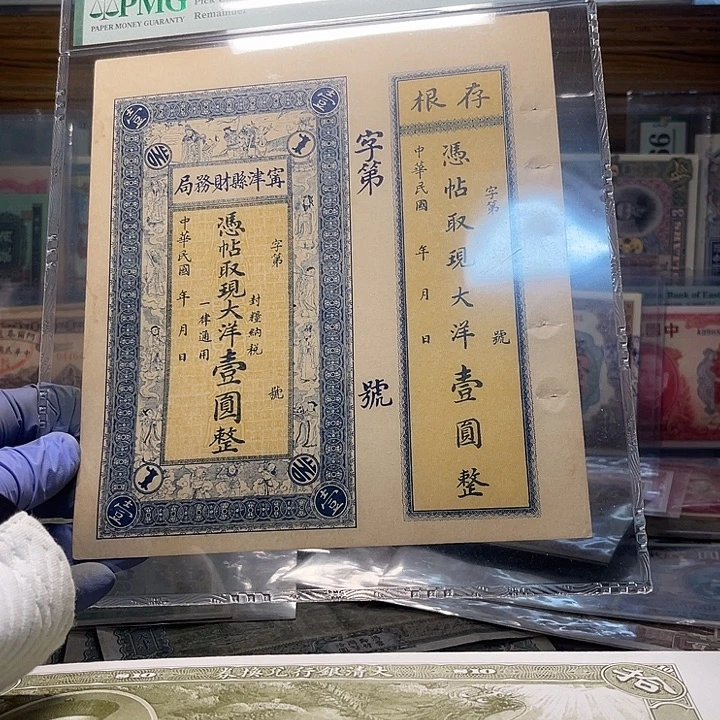 PMG
PAPER MONEY GUARANTY
Remainder
存根
憑帖取現大洋壹圓整
字第
號
中華民國 年 月 日
字第
號
壹
壹
ONE
寗津縣財務局
字第
號
封糧納稅
一律通用
憑帖取現大洋壹圓整
中華民國 年 月 日
ONE
壹
壹
大清銀行兌換券
拾